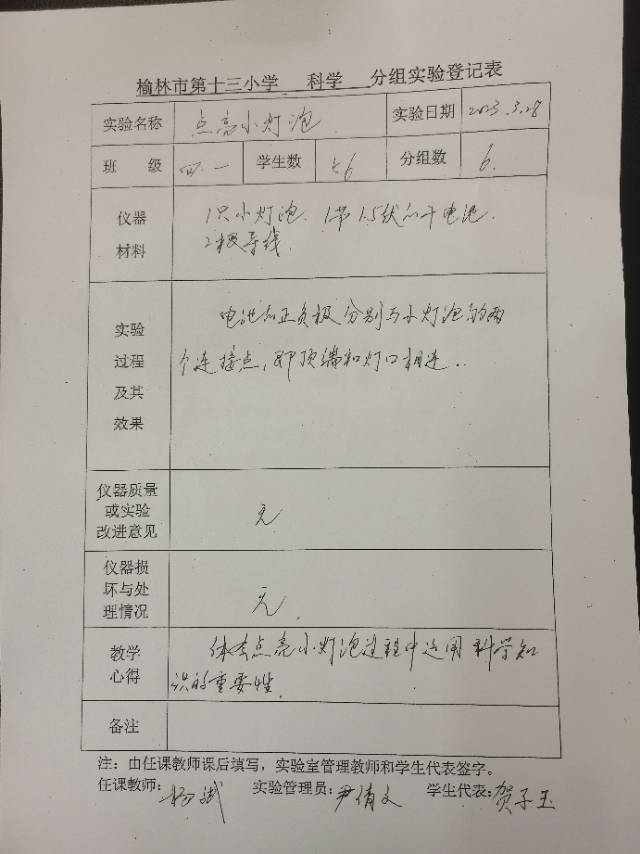 榆林市第十三小学 科学 分组实验登记表
实验名称 点亮小灯泡 实验日期 2023.3.28
班 级 四.一 学生数 6 分组数 6.
仪器
材料
1只小灯泡、1节1.5伏的干电池.
2根导线.
实验
过程
及其
效果
电池的正负极分别与小灯泡的两
个连接点,即顶端和灯口相连..
仪器质量
或实验
改进意见
无
仪器损
坏与处
理情况
无.
教学
心得
体会点亮小灯泡过程中运用科学知
识的重要性.
备注
注:由任课教师课后填写,实验室管理教师和学生代表签字。
任课教师: 杨斌 实验管理员: 尹倩文 学生代表: 贺子玉